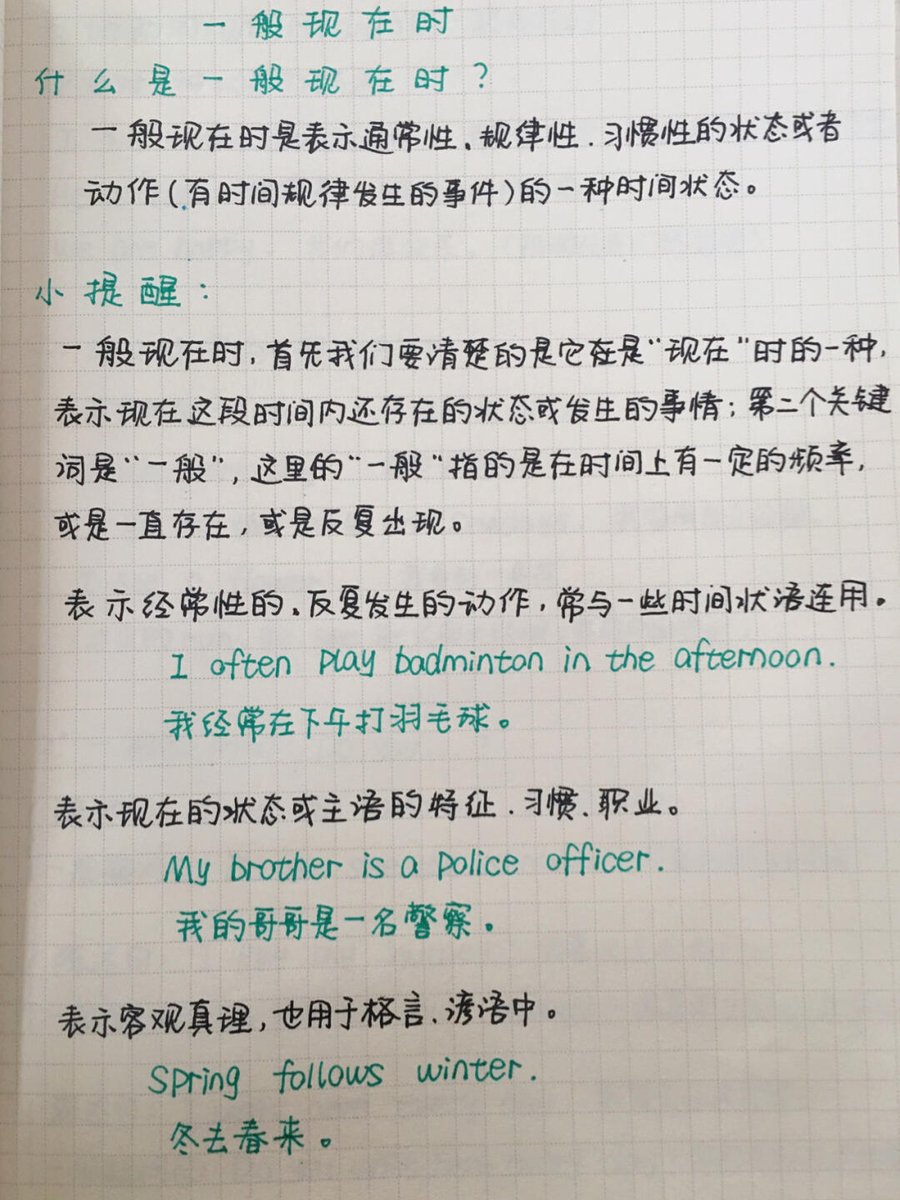 一般现在时
什么是一般现在时？
一般现在时是表示通常性、规律性、习惯性的状态或者
动作(有时间规律发生的事件)的一种时间状态。
小提醒：
一般现在时，首先我们要清楚的是它在是“现在”时的一种，
表示现在这段时间内还存在的状态或发生的事情；第二个关键
词是“一般”，这里的“一般”指的是在时间上有一定的频率，
或是一直存在，或是反复出现。
表示经常性的、反复发生的动作，常与一些时间状语连用。
I often play badminton in the afternoon.
我经常在下午打羽毛球。
表示现在的状态或主语的特征、习惯、职业。
My brother is a police officer.
我的哥哥是一名警察。
表示客观真理，也用于格言、谚语中。
Spring follows winter.
冬去春来。